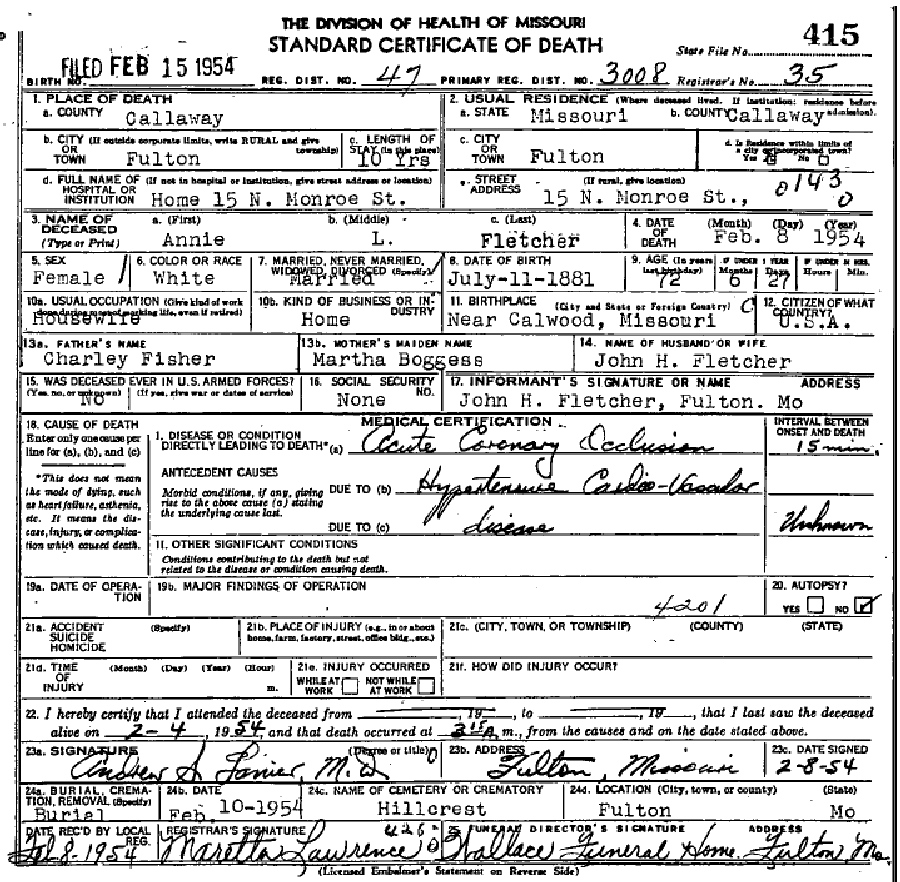 THE DIVISION OF HEALTH OF MISSOURI
STANDARD CERTIFICATE OF DEATH
State File No. 415
FILED FEB 15 1954
BIRTH NO. REG. DIST. NO. 47 PRIMARY REG. DIST. NO. 3008 Registrar's No. 35
1. PLACE OF DEATH
a. COUNTY Callaway
2. USUAL RESIDENCE (Where deceased lived. If institution: residence before admission).
a. STATE Missouri b. COUNTY Callaway
b. CITY (If outside corporate limits, write RURAL and give township) OR TOWN Fulton
c. LENGTH OF STAY (in this place) 10 Yrs
c. CITY OR TOWN Fulton
d. Is Residence within limits of a city or incorporated town? Yes No
d. FULL NAME OF HOSPITAL OR INSTITUTION (If not in hospital or institution, give street address or location) Home 15 N. Monroe St.
e. STREET ADDRESS (If rural, give location) 15 N. Monroe St., 0143 0
3. NAME OF DECEASED (Type or Print)
a. (First) Annie b. (Middle) L. c. (Last) Fletcher
4. DATE OF DEATH (Month) (Day) (Year) Feb. 8 1954
5. SEX Female
6. COLOR OR RACE White
7. MARRIED, NEVER MARRIED, WIDOWED, DIVORCED (Specify) Married
8. DATE OF BIRTH July-11-1881
9. AGE (In years last birthday) 72 IF UNDER 1 YEAR Months 6 Days 27 IF UNDER 24 HRS. Hours Min.
10a. USUAL OCCUPATION (Give kind of work done during most of working life, even if retired) Housewife
10b. KIND OF BUSINESS OR INDUSTRY Home
11. BIRTHPLACE (City and State or Foreign Country) Near Calwood, Missouri
12. CITIZEN OF WHAT COUNTRY? U.S.A.
13a. FATHER'S NAME Charley Fisher
13b. MOTHER'S MAIDEN NAME Martha Boggess
14. NAME OF HUSBAND OR WIFE John H. Fletcher
15. WAS DECEASED EVER IN U.S. ARMED FORCES? (Yes, no, or unknown) (If yes, give war or dates of service) No
16. SOCIAL SECURITY NO. None
17. INFORMANT'S SIGNATURE OR NAME ADDRESS John H. Fletcher, Fulton. Mo
18. CAUSE OF DEATH
Enter only one cause per line for (a), (b), and (c)
*This does not mean the mode of dying, such as heart failure, asthenia, etc. It means the disease, injury, or complication which caused death.
MEDICAL CERTIFICATION
INTERVAL BETWEEN ONSET AND DEATH
I. DISEASE OR CONDITION DIRECTLY LEADING TO DEATH* (a) Acute Coronary Occlusion 15 min.
ANTECEDENT CAUSES
Morbid conditions, if any, giving rise to the above cause (a) stating the underlying cause last.
DUE TO (b) Hypertensive Cardio-Vascular
DUE TO (c) disease Unknown
II. OTHER SIGNIFICANT CONDITIONS
Conditions contributing to the death but not related to the disease or condition causing death.
19a. DATE OF OPERATION
19b. MAJOR FINDINGS OF OPERATION
4201
20. AUTOPSY? YES NO
21a. ACCIDENT SUICIDE HOMICIDE (Specify)
21b. PLACE OF INJURY (e.g., in or about home, farm, factory, street, office bldg., etc.)
21c. (CITY, TOWN, OR TOWNSHIP) (COUNTY) (STATE)
21d. TIME OF INJURY (Month) (Day) (Year) (Hour) m.
21e. INJURY OCCURRED WHILE AT WORK NOT WHILE AT WORK
21f. HOW DID INJURY OCCUR?
22. I hereby certify that I attended the deceased from , 19 , to , 19 , that I last saw the deceased
alive on 2-4, 1954 and that death occurred at m., from the causes and on the date stated above.
23a. SIGNATURE (Degree or title) Andrew S Lanier, M.D
23b. ADDRESS Fulton, Missouri
23c. DATE SIGNED 2-8-54
24a. BURIAL, CREMATION, REMOVAL (Specify) Burial
24b. DATE Feb. 10-1954
24c. NAME OF CEMETERY OR CREMATORY Hillcrest
24d. LOCATION (City, town, or county) (State) Fulton Mo
DATE REC'D BY LOCAL REG. Feb-8-1954
REGISTRAR'S SIGNATURE Maretta Lawrence
FUNERAL DIRECTOR'S SIGNATURE ADDRESS Wallace Funeral Home. Fulton Mo.
(Licensed Embalmer's Statement on Reverse Side)